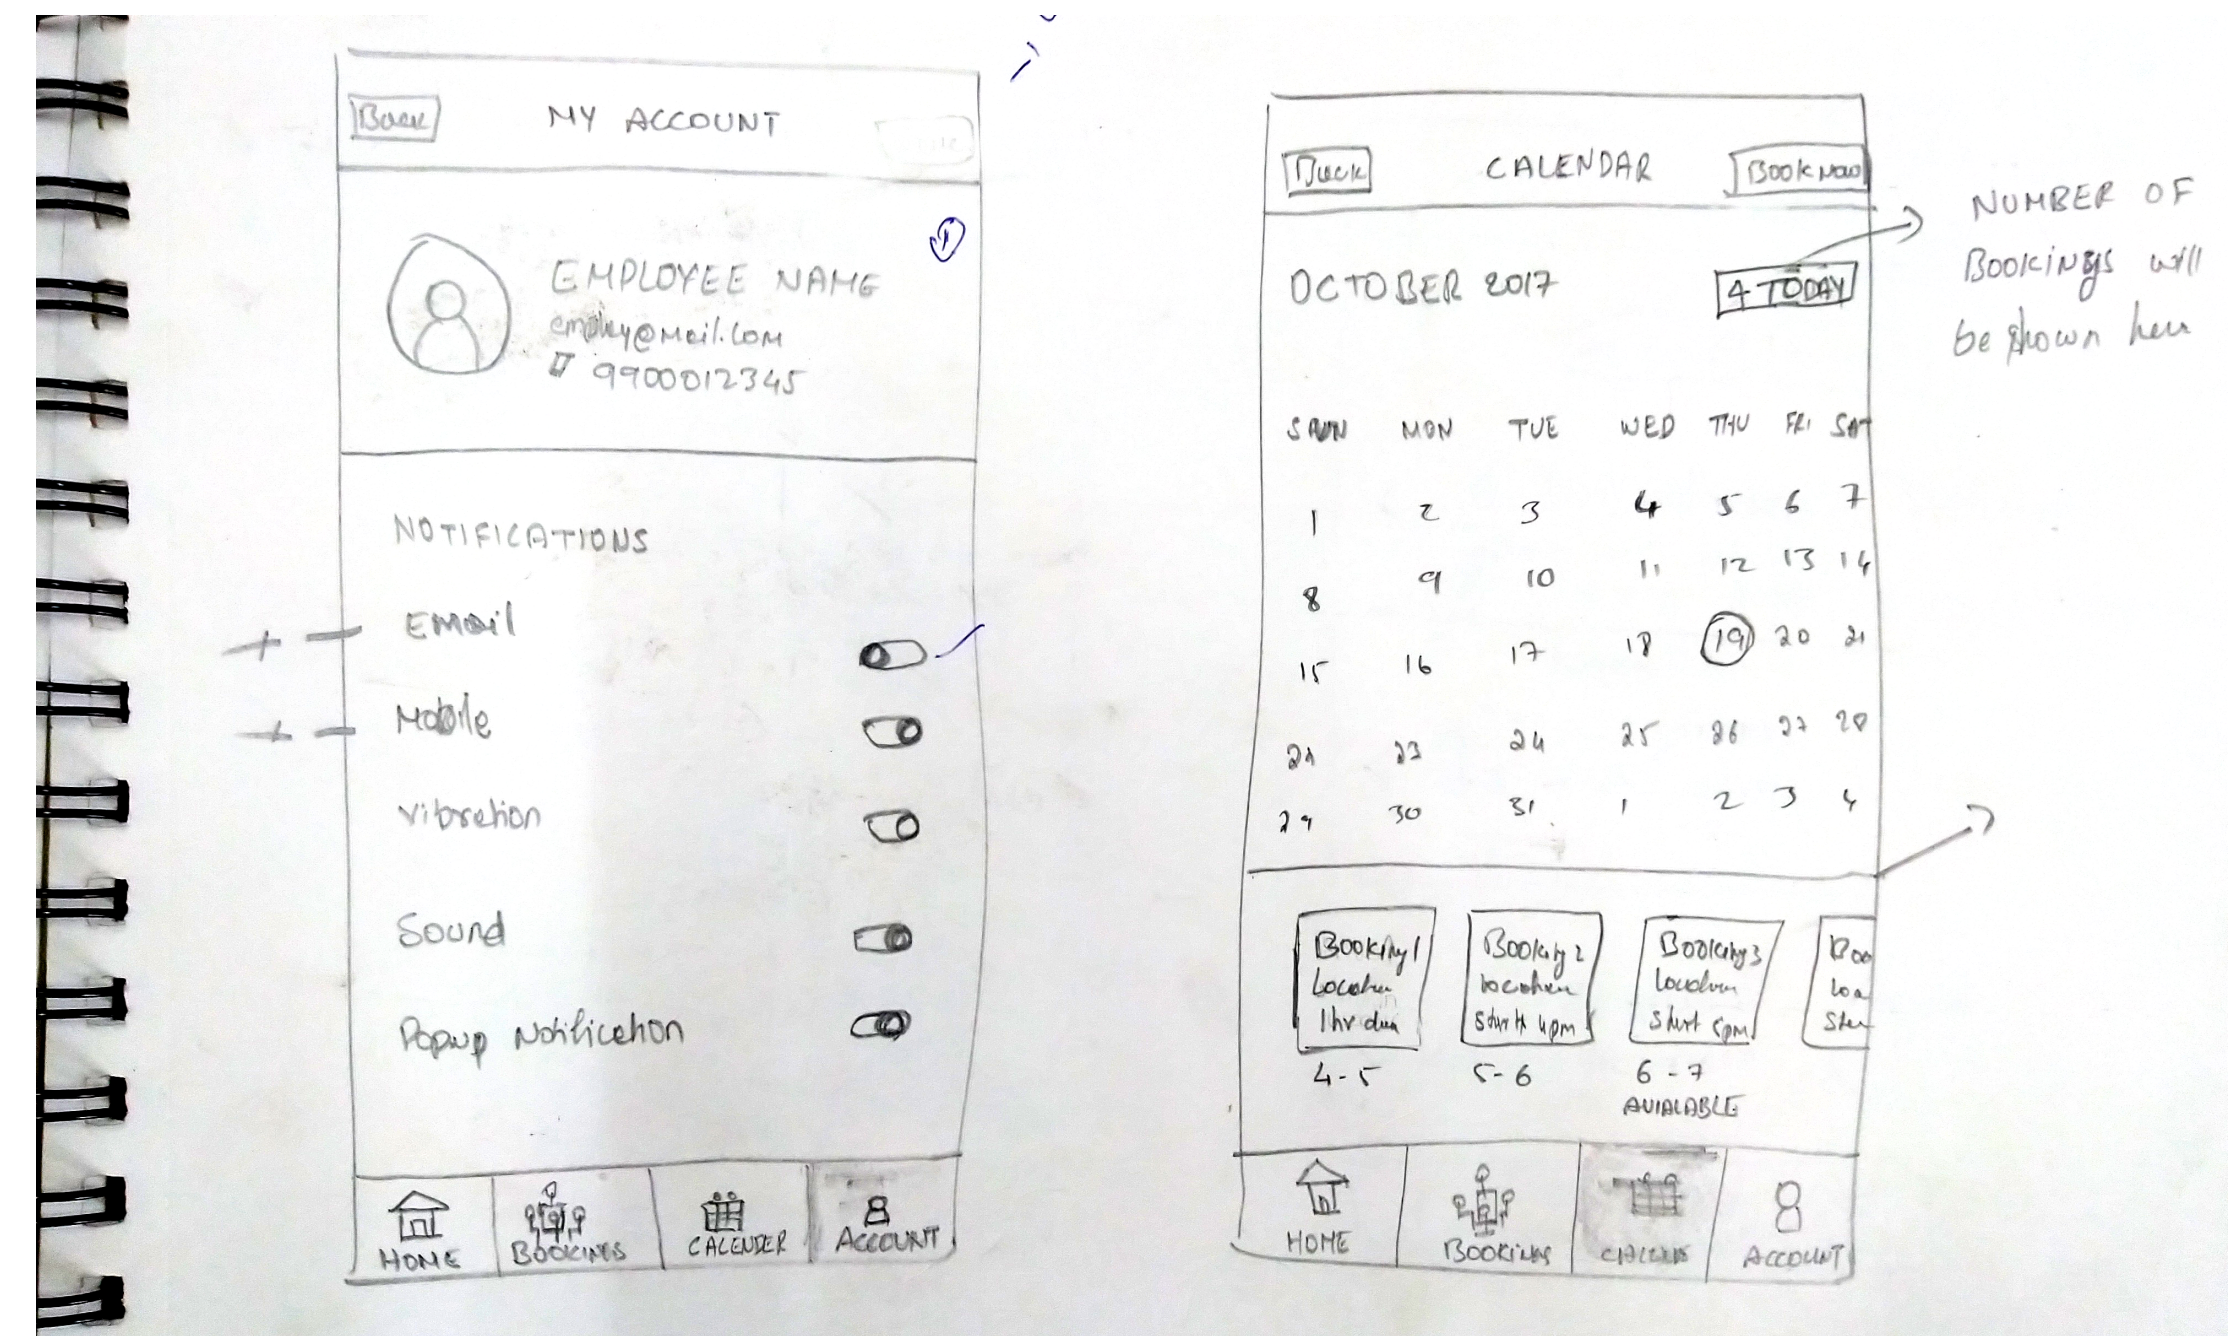 Back MY ACCOUNT
EMPLOYEE NAME
9900012345
NOTIFICATIONS
Email
Mobile
Vibration
Sound
Popup Notification
HOME BOOKINGS CALENDER ACCOUNT
Back CALENDAR BOOK NOW
OCTOBER 2017 4 TODAY
NUMBER OF
BOOKINGS will
be shown here
SUN MON TUE WED THU FRI SAT
1 2 3 4 5 6 7
8 9 10 11 12 13 14
15 16 17 18 19 20 21
22 23 24 25 26 27 28
29 30 31 1 2 3 4
Booking 1 Booking 2 Booking 3 Boo
Location Location Location Loa
1 hr Start 4pm Start 5pm
4-5 5-6 6-7
AVIALABLE
HOME BOOKINGS ACCOUNT